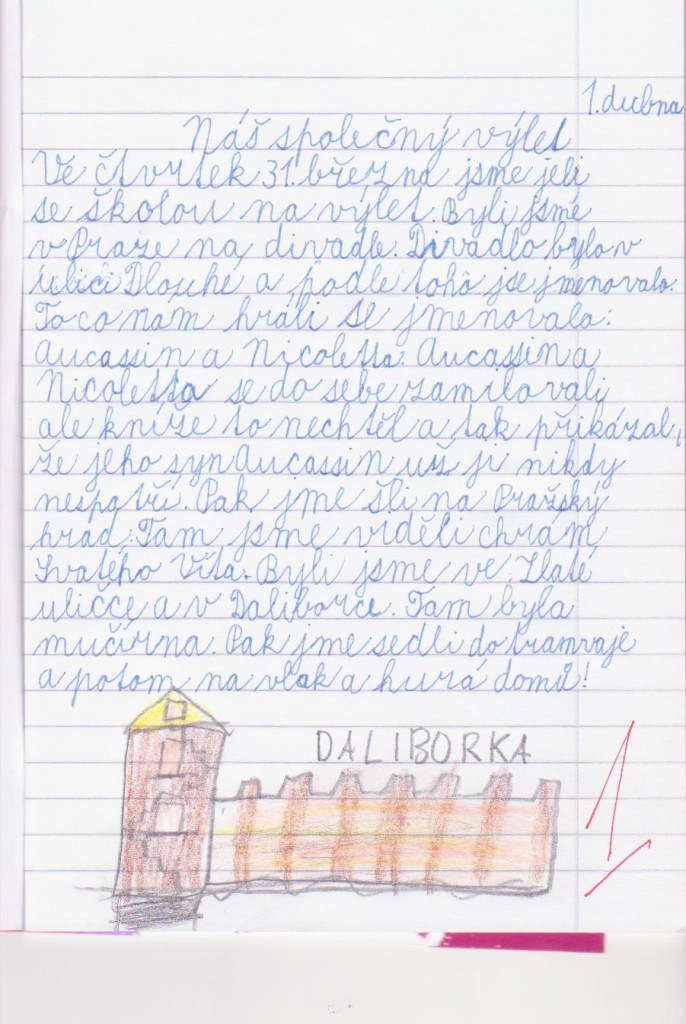 1. dubna
Náš společný výlet
Ve čtvrtek 31. března jsme jeli
se školou na výlet. Byli jsme
v Praze na divadle. Divadlo bylo v
ulici Dlouhé a podle toho jse jmenovalo.
To co nam hráli se jmenovalo:
Aucassin a Nicoletta. Aucassin a
Nicoletta se do sebe zamilovali,
ale kníže to nechtěl a tak přikázal,
že jeho syn Aucassin už ji nikdy
nespatří. Pak jme šli na Pražský
hrad. Tam jsme viděli chrám
Svatého Víta. Byli jsme ve Zlaté
uličce a v Daliborce. Tam byla
mučírna. Pak jme sedli do tramvaje
a potom na vlak a hurá domů!
DALIBORKA
1